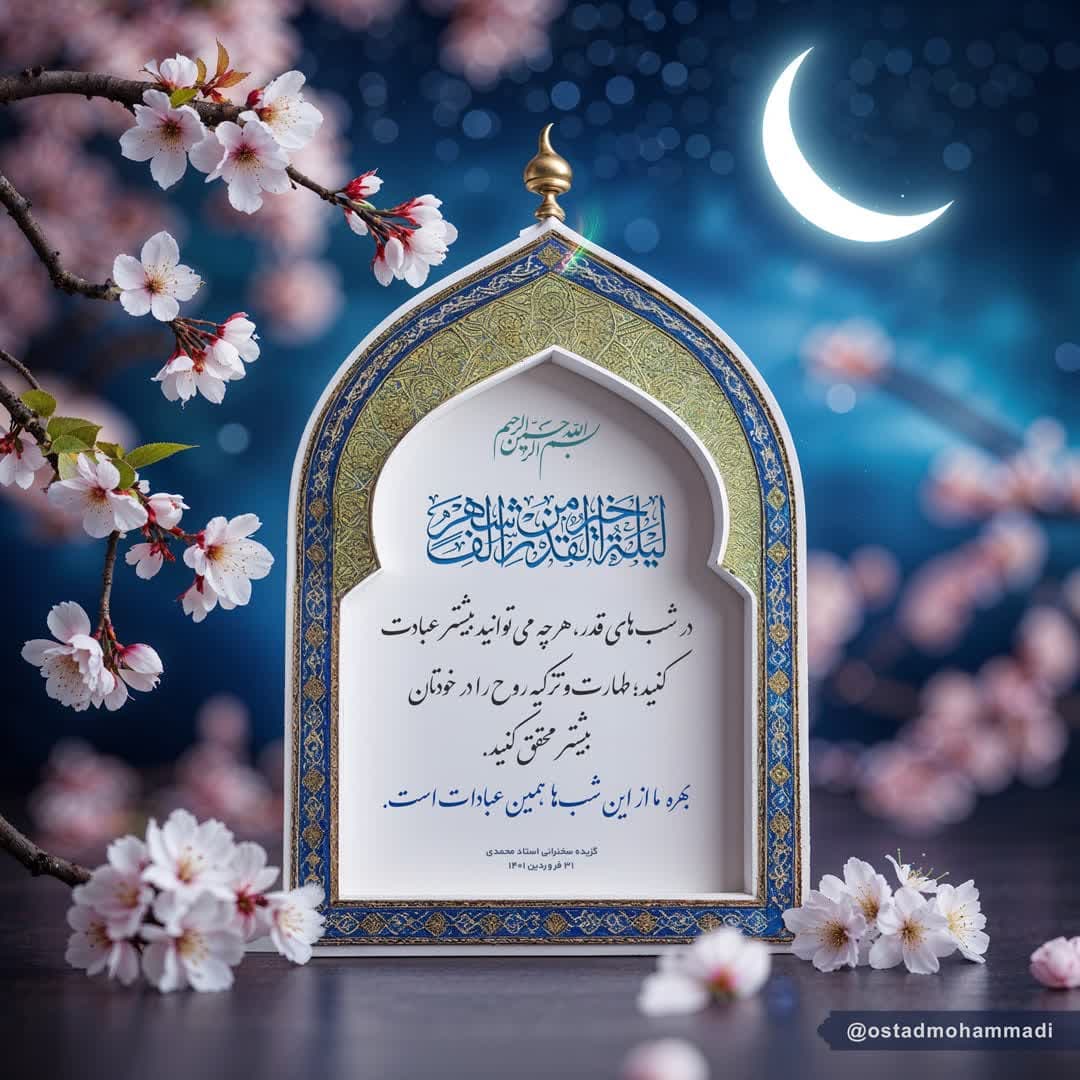 بسم الله الرحمن الرحیم
لیلة القدر خیر من الف شهر
در شب‌های قدر، هرچه می‌توانید بیشتر عبادت
کنید؛ طهارت و تزکیه روح را در خودتان
بیشتر محقق کنید.
بهره ما از این شب‌ها همین عبادات است.
گزیده سخنرانی استاد محمدی
۳۱ فروردین ۱۴۰۱
@ostadmohammadi